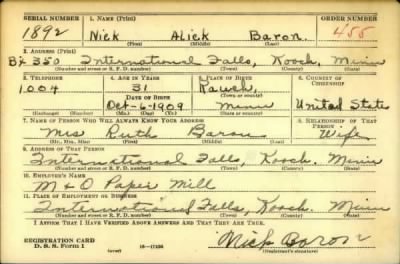 SERIAL NUMBER 1. NAME (Print) ORDER NUMBER
1892 Nick Alick Baron 455
(First) (Middle) (Last)
2. ADDRESS (Print)
Bx 350 International Falls, Kooch. Minn
(Number and street or R. F. D. number) (Town) (County) (State)
3. TELEPHONE 4. AGE IN YEARS 5. PLACE OF BIRTH 6. COUNTRY OF CITIZENSHIP
1004 31 Rauch,
DATE OF BIRTH
Oct-6-1909 Minn United States
(Exchange) (Number) (Mo.) (Day) (Yr.) (State or country)
7. NAME OF PERSON WHO WILL ALWAYS KNOW YOUR ADDRESS 8. RELATIONSHIP OF THAT PERSON
Mrs Ruth Baron Wife
(Mr., Mrs., Miss) (First) (Middle) (Last)
9. ADDRESS OF THAT PERSON
International Falls, Kooch. Minn
(Number and street or R. F. D. number) (Town) (County) (State)
10. EMPLOYER'S NAME
M & O Paper Mill
11. PLACE OF EMPLOYMENT OR BUSINESS
International Falls, Kooch. Minn
(Number and street or R. F. D. number) (Town) (County) (State)
I AFFIRM THAT I HAVE VERIFIED ABOVE ANSWERS AND THAT THEY ARE TRUE.
REGISTRATION CARD
D. S. S. Form 1 (over) Nick Baron
(Registrant's signature)